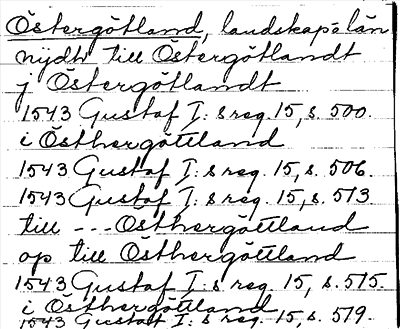 Östergötland, landskap o län
nydh till Östergötlandt
j Östergötlandt
1543 Gustaf I:s reg. 15, s. 500.
i Östhergöttland
1543 Gustaf I:s reg. 15, s. 506.
1543 Gustaf I:s reg. 15, s. 513.
till --- Östhergöttland
op till Östhergöttland
1543 Gustaf I:s reg. 15, s. 515.
i Östhergöttland
1543 Gustaf I:s reg. 15, s. 519.